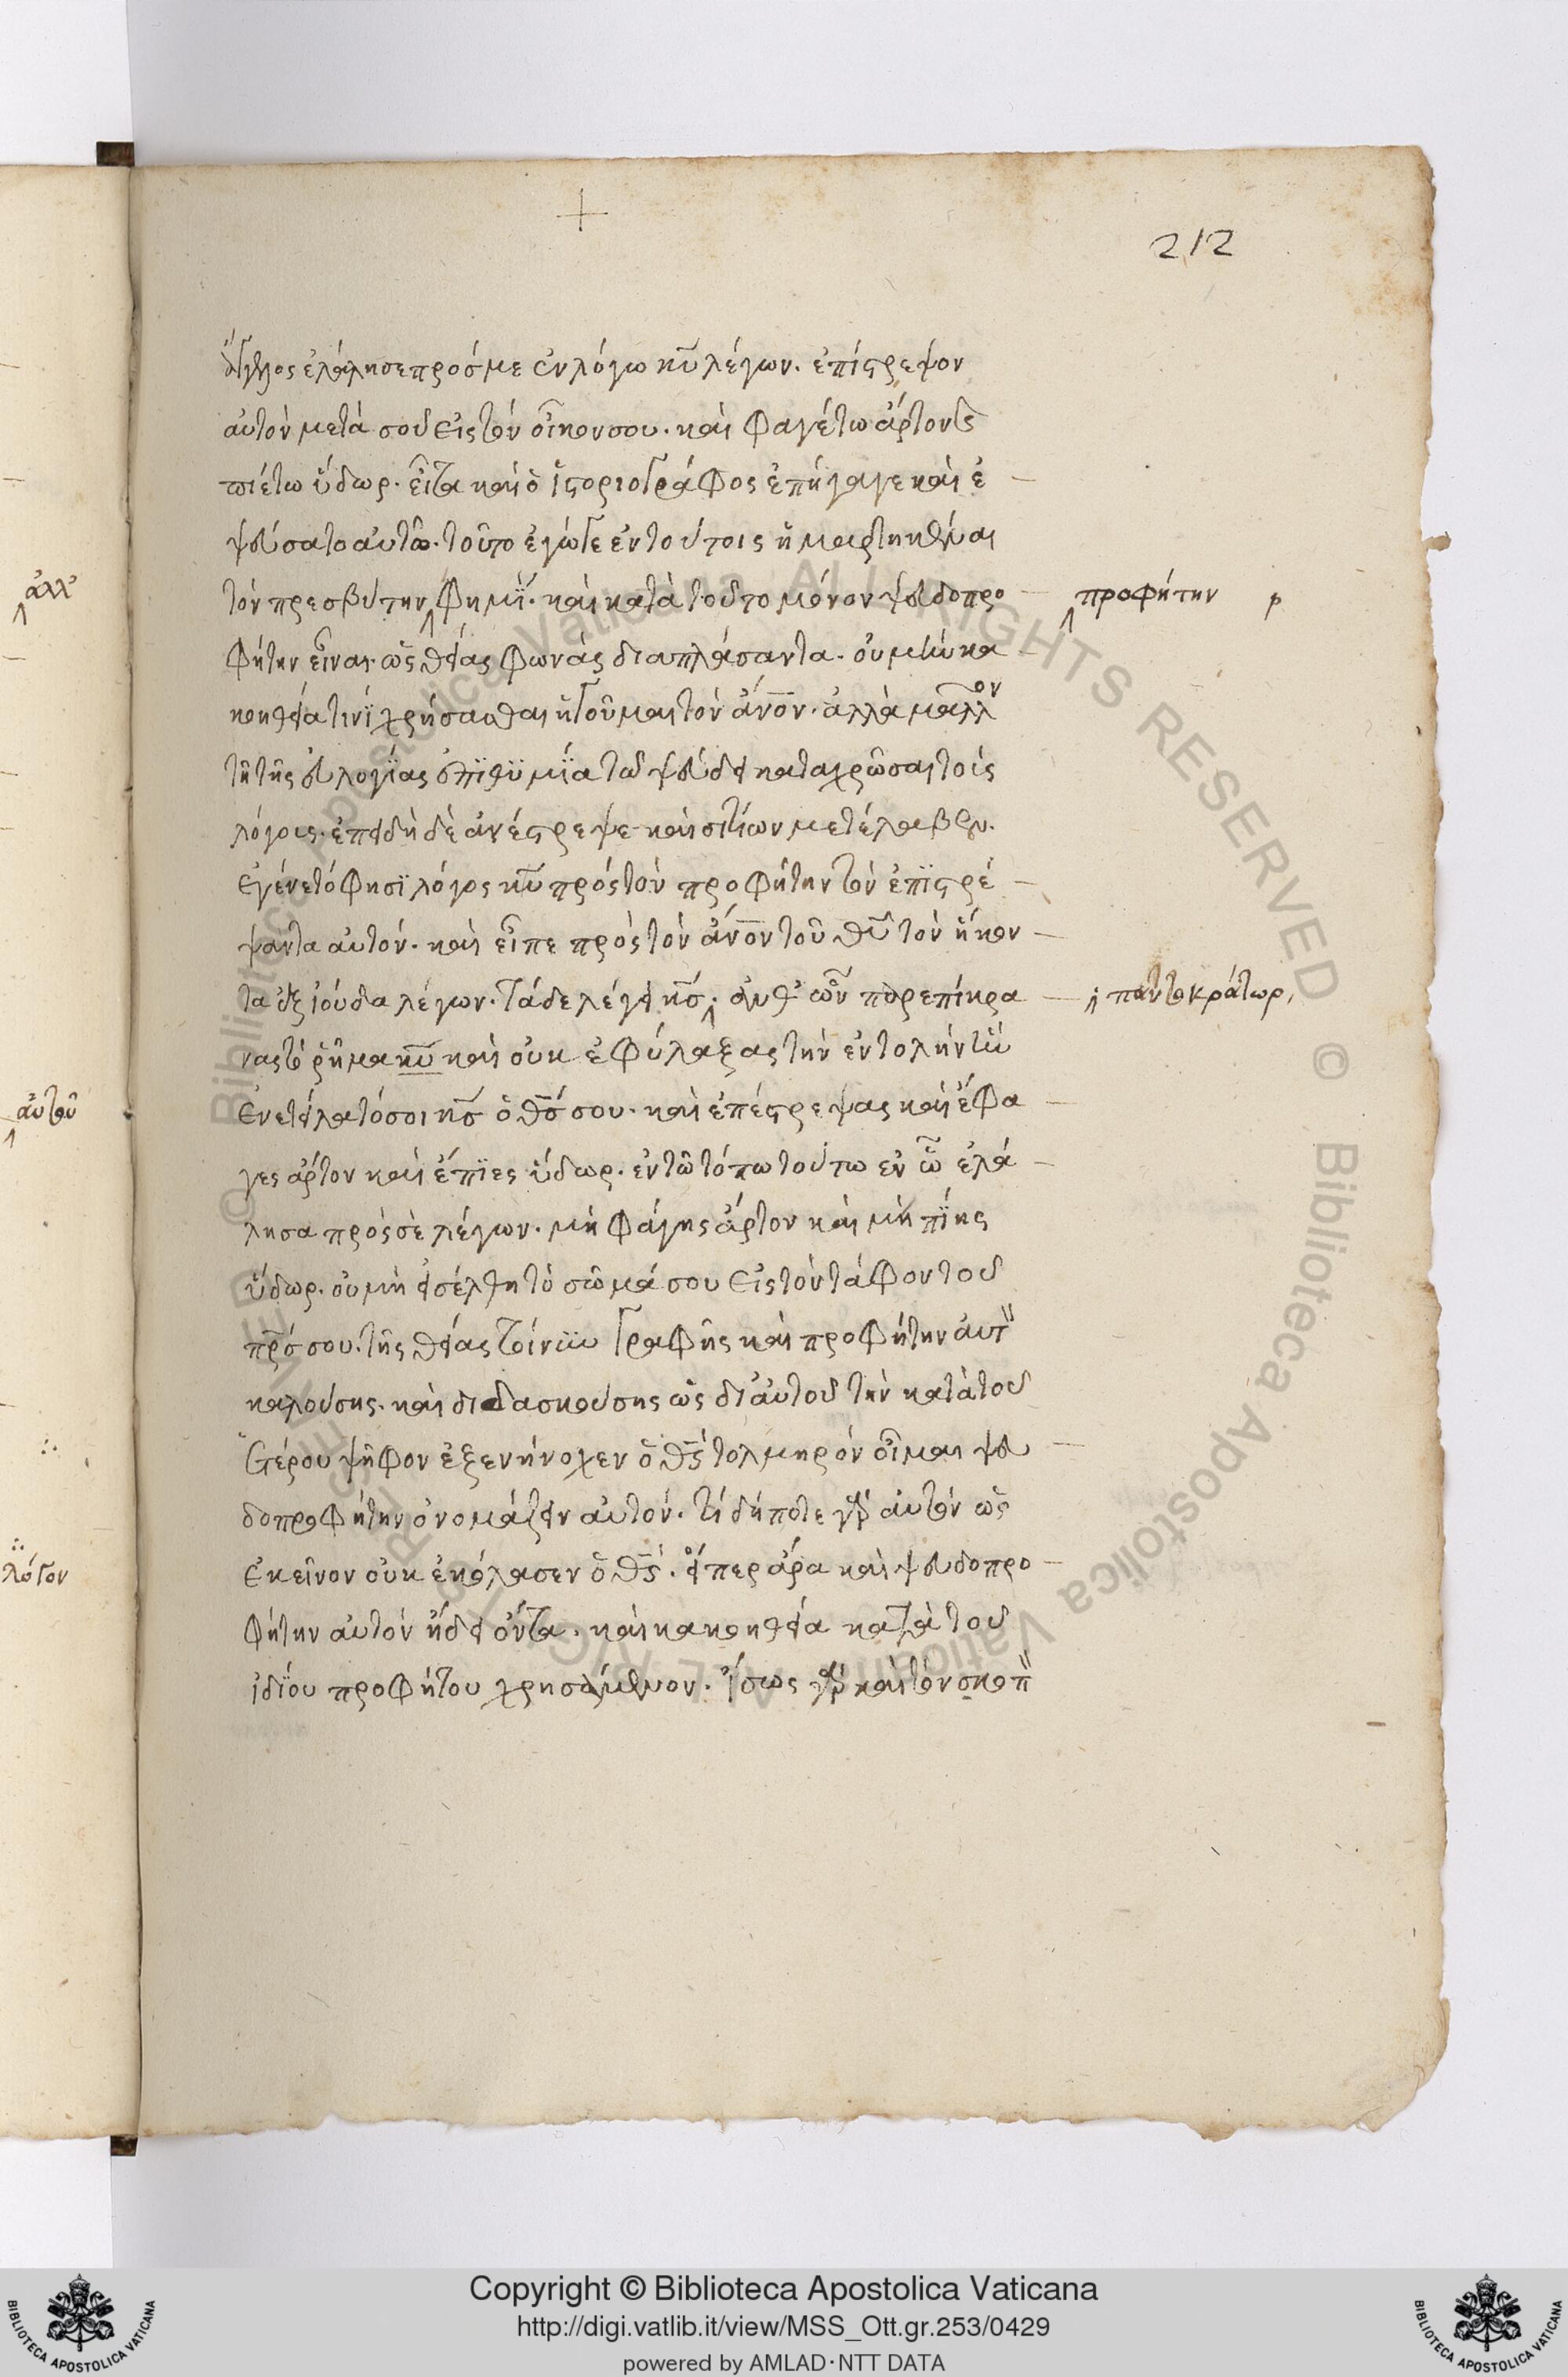 212
ἄγγελος ἐλάλησε πρός με ἐν λόγω κῡ λέγων. ἐπίστρεψον
αὐτὸν μετὰ σοῦ εἰς τὸν οἶκον σου. καὶ φαγέτω ἄρτον ϛ
πιέτω ὕδωρ. εἶτα καὶ ὁ ἱστοριογράφος ἐπήγαγε καὶ ἐ
ψεύσατο αὐτῶ. τοῦτο ἐγώγε ἐν τούτοις ἡμαρτηκέναι
τὸν πρεσβύτην φημΐ. καὶ κατὰ τοῦτο μόνον ψευδοπρο
προφήτην
φήτην εἶναι. ὡς θείας φωνὰς διαπλάσαντα. οὐ μὴν κα
κοηθεία τινὶ χρήσασθαι ἡγοῦμαι τὸν ἄνο̄ν. ἀλλὰ μᾶλλον
τῆ τῆς εὐλογΐας ἐπϊθϋμΐα τῶ ψεύδει καταχρῶσαι τοῖς
λόγοις. ἐπειδὴ δὲ ἀνέστρεψε καὶ σιτίων μετέλαβεν.
ἐγένετό φησϊ λόγος κῡ πρὸς τὸν προφήτην τὸν ἐπϊστρέ
ψαντα αὐτόν. καὶ εἶπε πρὸς τὸν ἄνο̄ν τοῦ θῡ τὸν ἥκον
τα ἐξ ἰούδα λέγων. τάδε λέγει κς̄. ἀνθ' ὧν παρεπίκρα
παντοκράτωρ,
νας τὸ ῥῆμα κῡ καὶ οὐκ ἐφύλαξας τὴν ἐντολὴν ἣν
ἐνετείλατό σοι κς̄ ὁ θς̄ σου. καὶ ἐπέστρεψας καὶ ἔφα
γες ἄρτον καὶ ἔπϊες ὕδωρ. ἐν τῶ τόπω τούτω ἐν ὧ ἐλά
λησα πρὸς σὲ λέγων. μὴ φάγης ἄρτον καὶ μὴ πΐης
ὕδωρ. οὐ μὴ εἰσέλθη τὸ σῶμά σου εἰς τὸν τάφον τοῦ
πρ̄ός σου. τῆς θείας τοίνυν γραφῆς καὶ προφήτην αὐτ
καλούσης. καὶ διδασκούσης ὡς δι' αὐτοῦ τὴν κατὰ τοῦ
ἑτέρου ψῆφον ἐξενήνοχεν ὁ θς̄ τολμηρὸν οἶμαι ψευ
δοπροφήτην ὀνομάζειν αὐτόν. τί δήποτε γὰρ αὐτὸν ὡς
ἐκεῖνον οὐκ ἐκόλασεν ὁ θς̄. εἴπερ ἄρα καὶ ψευδοπρο
φήτην αὐτὸν ᾔδει ὄντα. καὶ κακοηθεία κατὰ τοῦ
ἰδΐου προφήτου χρησάμενον. ἴσως γὰρ καὶ τὸν σκοπ
ἀλλ'
αὐτοῦ
λόγον
Copyright © Biblioteca Apostolica Vaticana
http://digi.vatlib.it/view/MSS_Ott.gr.253/0429
powered by AMLAD·NTT DATA